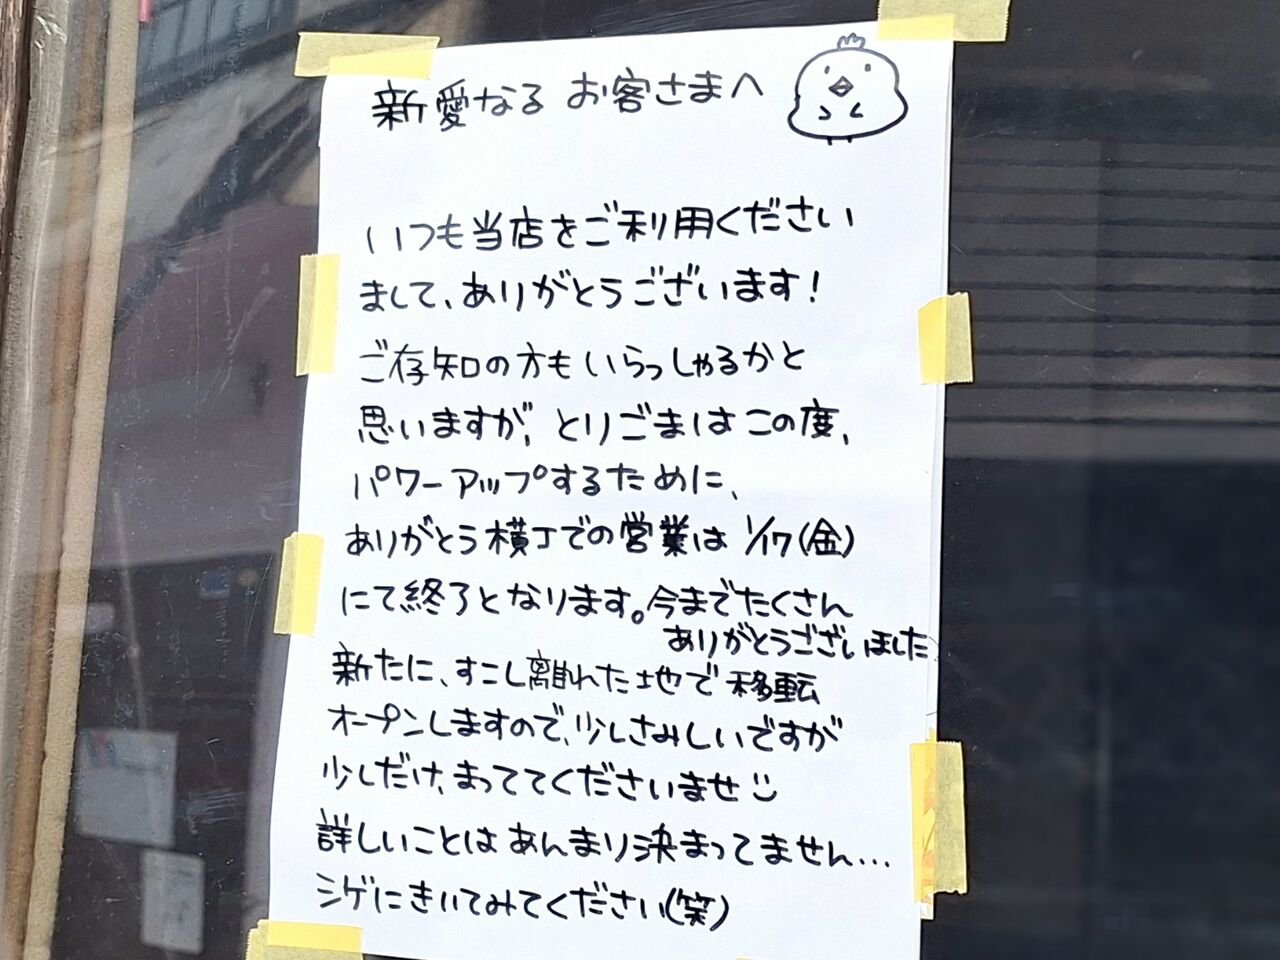 新愛なる お客さまへ
いつも当店をご利用ください
まして、ありがとうございます!
ご存知の方もいらっしゃるかと
思いますが、とりごまはこの度、
パワーアップするために、
ありがとう横丁での営業は 1/17(金)
にて終了となります。今までたくさん
ありがとうございました
新たに、すこし離れた土地で移転
オープンしますので、少しさみしいですが
少しだけ、まっててくださいませ
詳しいことはあんまり決まってません…
シゲにきいてみてください(笑)